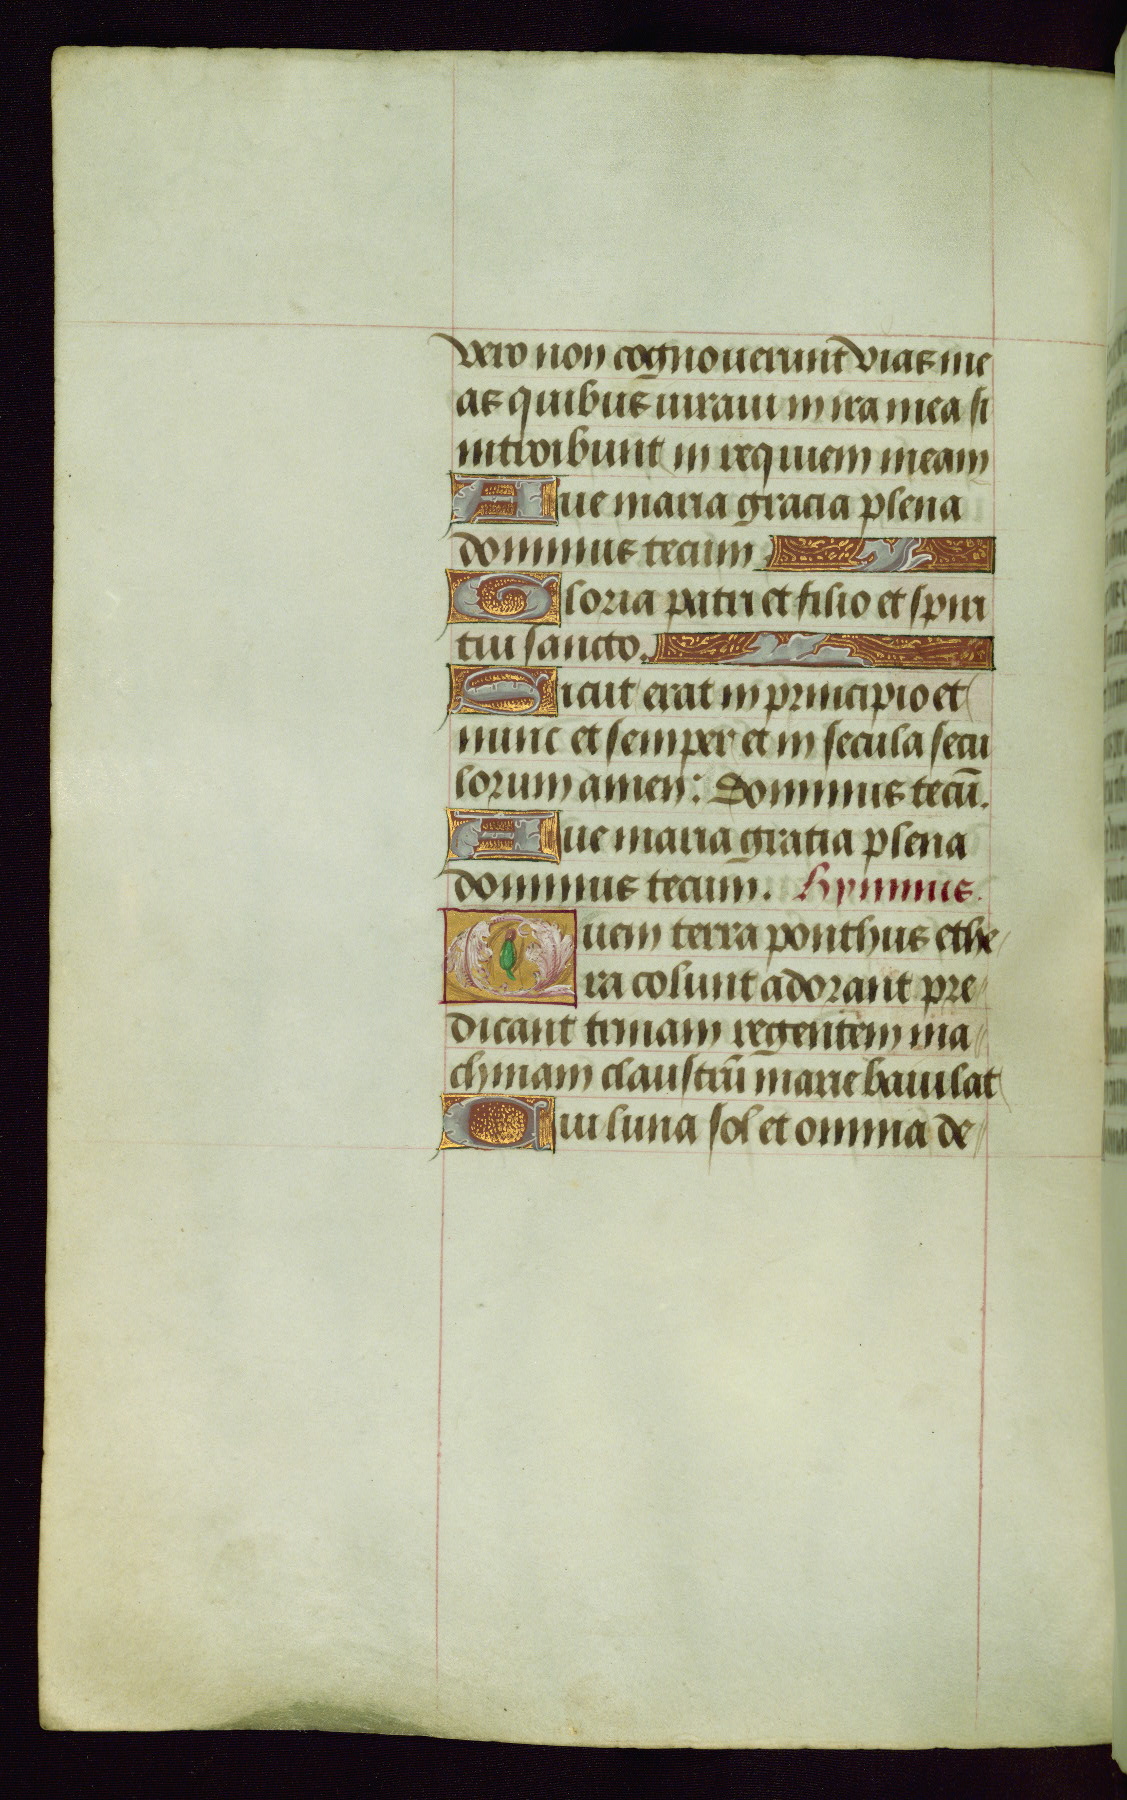 vero non cognouerunt vias me
as quibus iuraui in ira mea si
introibunt in requiem meam
Aue maria gracia plena
dominus tecum.
Gloria patri et filio et spiri
tui sancto.
Sicut erat in principio et
nunc et semper et in secula secu
lorum amen: Dominus tecū.
Aue maria gratia plena
dominus tecum. Hympnus.
Quem terra ponthus ethe
ra colunt adorant pre
dicant trinam regentem ma
chinam claustrū marie baiulat
Cui luna sol et omnia de